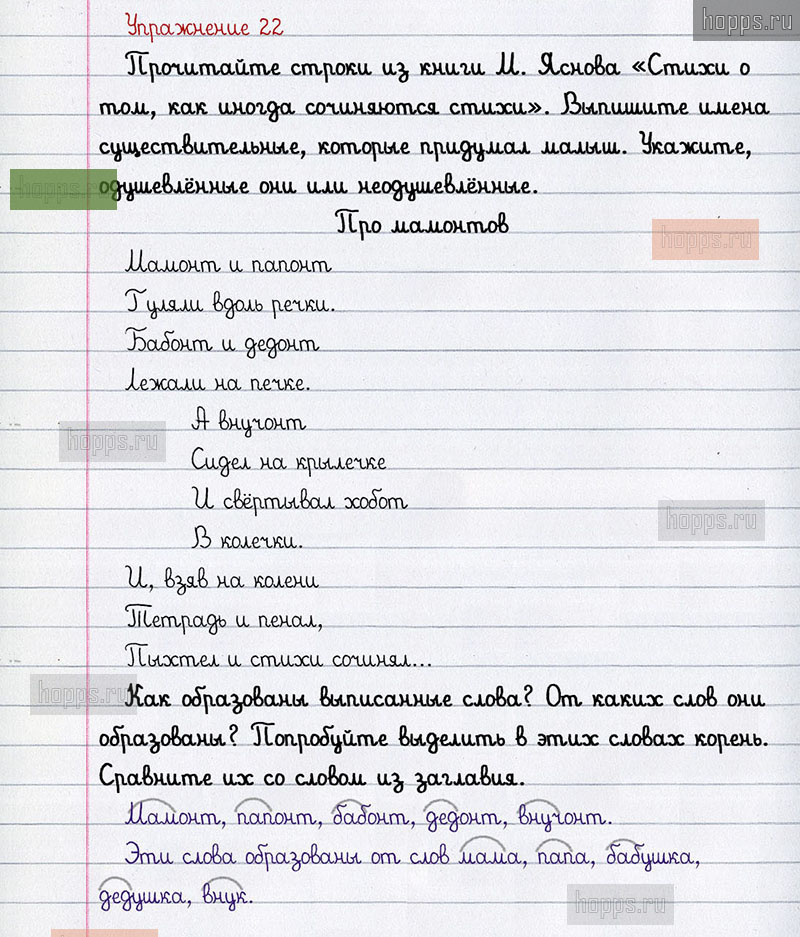 hopps.ru
Упражнение 22
Прочитайте строки из книги М. Яснова «Стихи о
том, как иногда сочиняются стихи». Выпишите имена
существительные, которые придумал малыш. Укажите,
hopps.ru
одушевлённые они или неодушевлённые.
Про мамонтов
hopps.ru
Мамонт и папонт
Гуляли вдоль речки.
Бабонт и дедонт
Лежали на печке.
А внучонт
hopps.ru
Сидел на крылечке
И свёртывал хобот
hopps.ru
В колечки.
И, взяв на колени
Тетрадь и пенал,
Пыхтел и стихи сочинял...
hopps.ru
Как образованы выписанные слова? От каких слов они
образованы? Попробуйте выделить в этих словах корень.
Сравните их со словом из заглавия.
Мамонт, папонт, бабонт, дедонт, внучонт.
Эти слова образованы от слов мама, папа, бабушка,
дедушка, внук.
hopps.ru